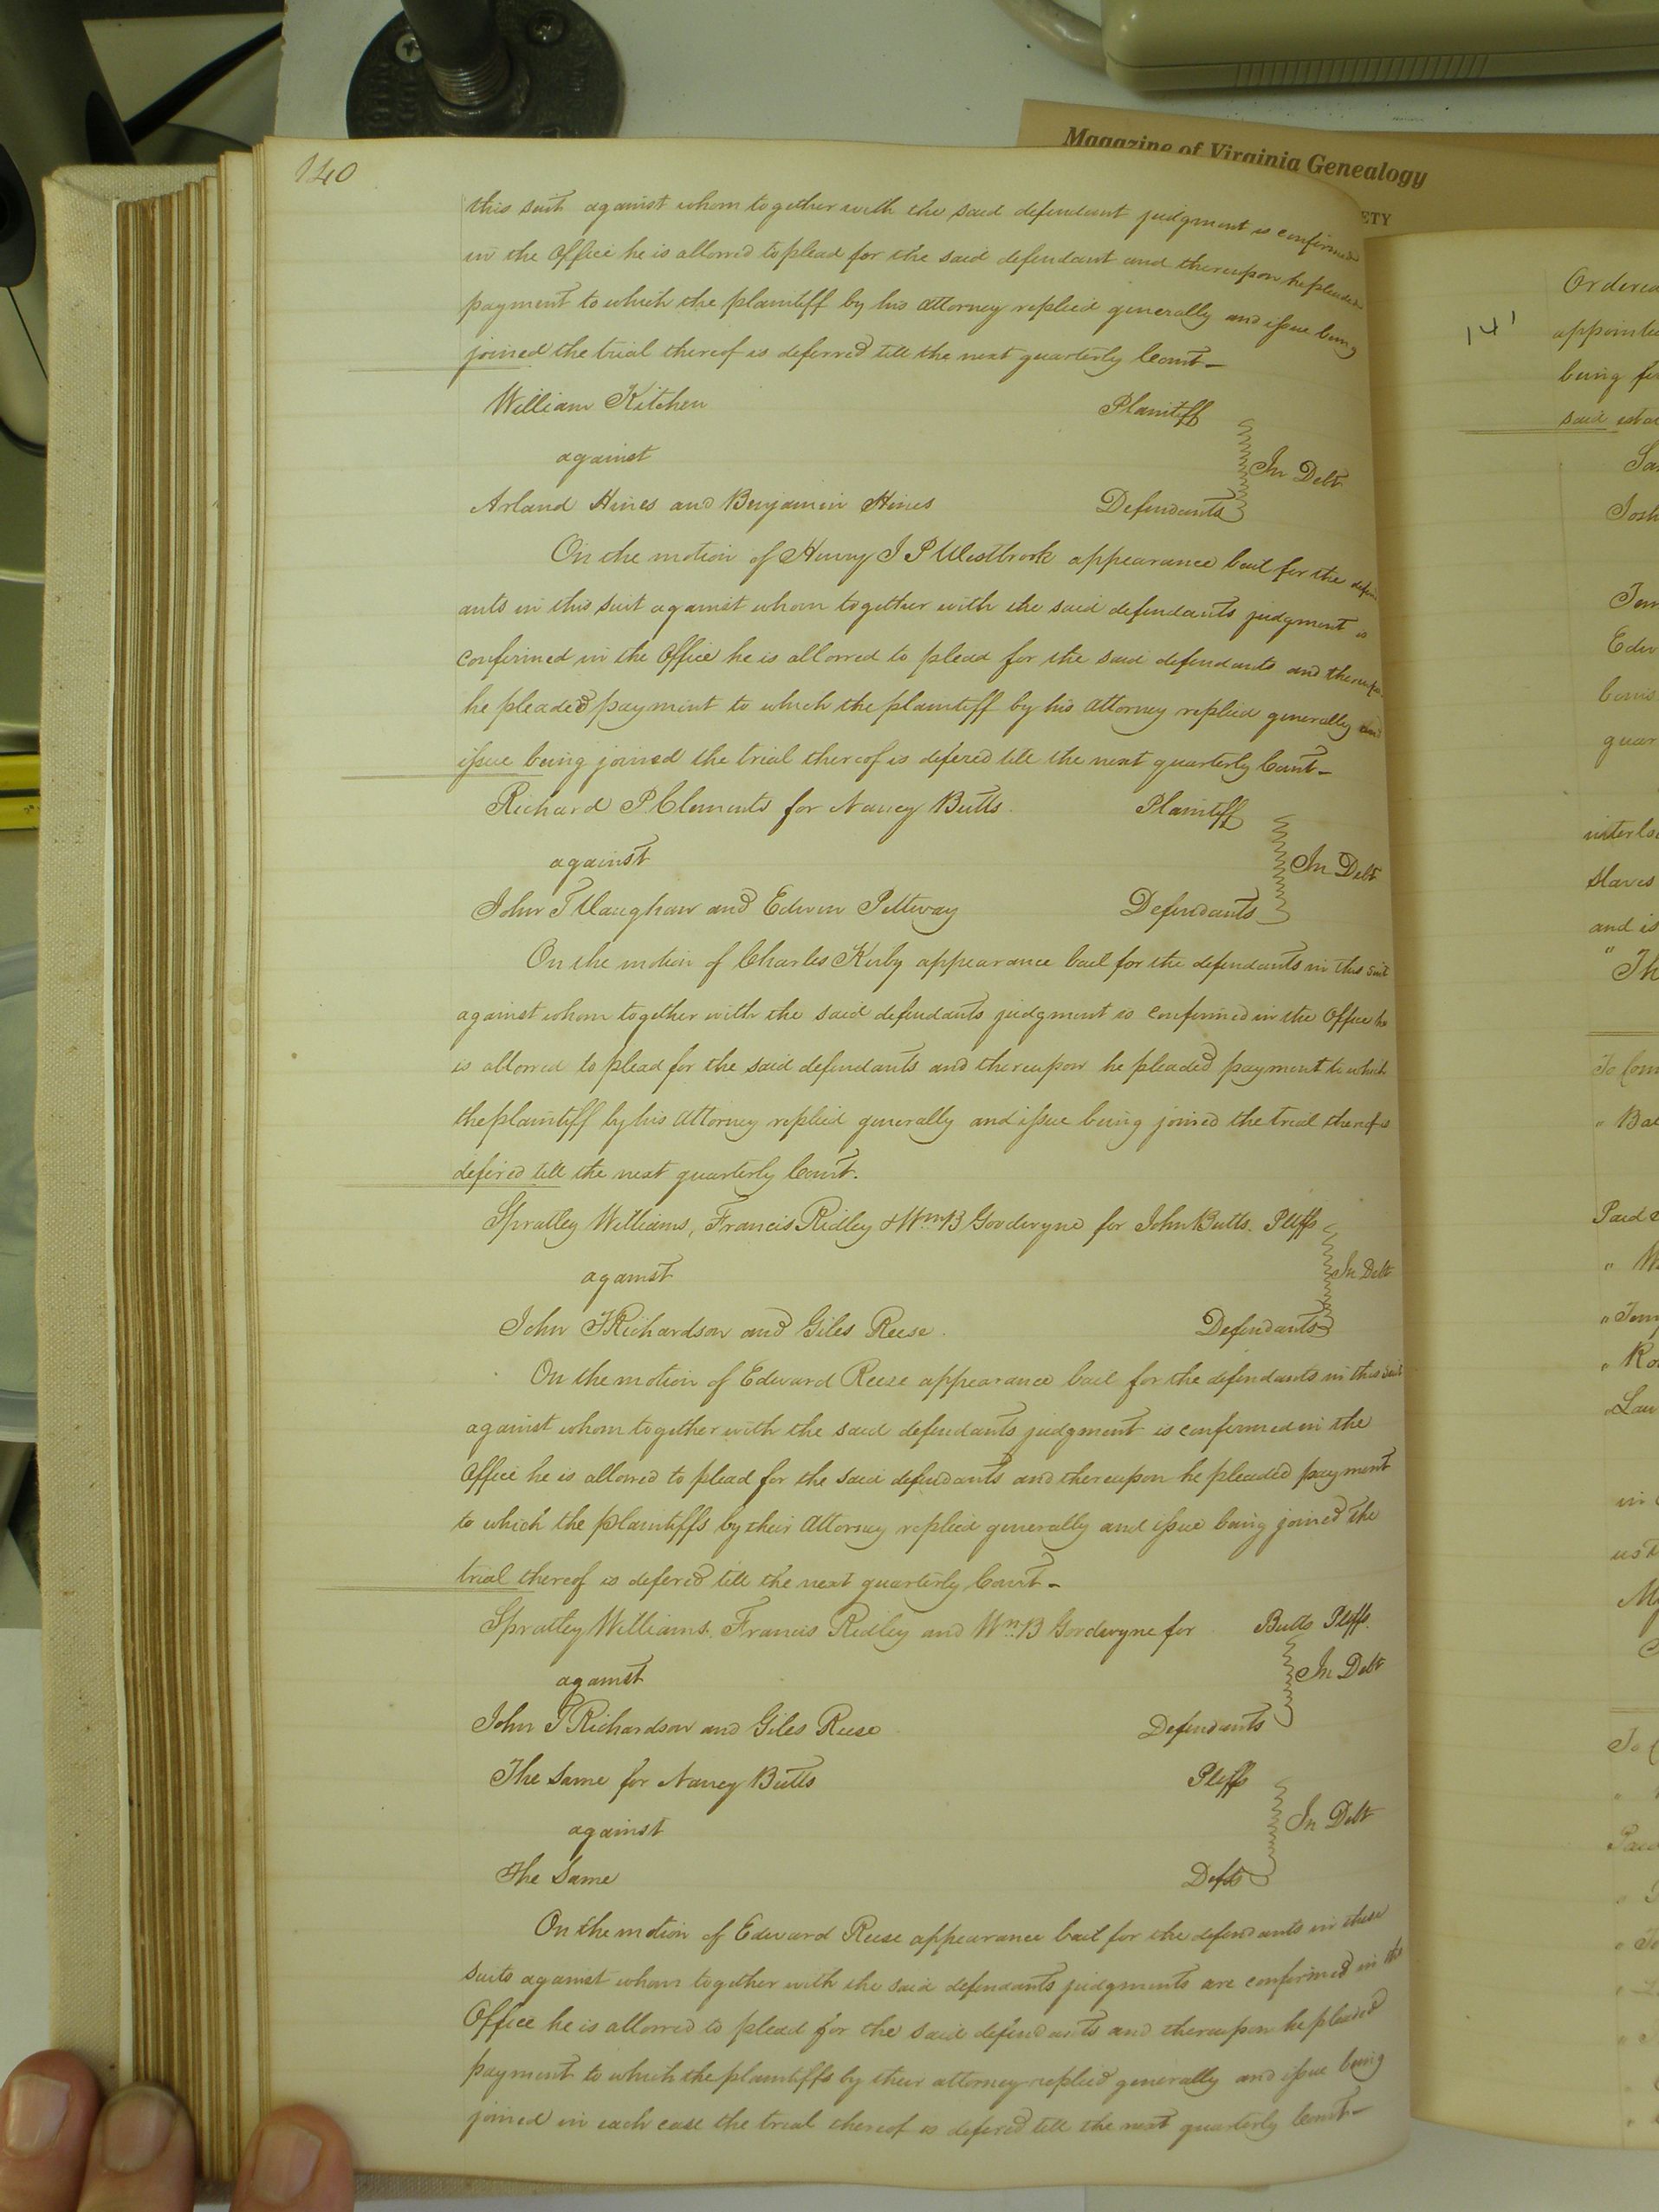 Magazine of Virginia Genealogy
ETY
140
this suit against whom together with the said defendant judgment is confirmed
in the Office he is allowed to plead for the said defendant and thereupon he pleaded
payment to which the plaintiff by his attorney replied generally and issue being
joined the trial thereof is deferred till the next quarterly Court-
William Kitchen Plaintiff
against In Debt
Arland Hines and Benjamin Hines Defendants
On the motion of Henry J P Westbrook appearance bail for the defend
ants in this suit against whom together with the said defendants judgment is
confirmed in the Office he is allowed to plead for the said defendants and thereupon
he pleaded payment to which the plaintiff by his attorney replied generally and
issue being joined the trial thereof is defered till the next quarterly Court-
Richard P Clements for Nancy Butts Plaintiff
against In Debt
John T Vaughan and Edwin Pettway Defendants
On the motion of Charles Kirby appearance bail for the defendants in this suit
against whom together with the said defendants judgment is confirmed in the Office he
is allowed to plead for the said defendants and thereupon he pleaded payment to which
the plaintiff by his attorney replied generally and issue being joined the trial thereof is
defered till the next quarterly Court.
Spratley Williams, Francis Ridley & Wm B Goodwyne for John Butts. Pltffs
against In Debt
John T Richardson and Giles Reese. Defendants
On the motion of Edward Reese appearance bail for the defendants in this suit
against whom together with the said defendants judgment is confirmed in the
Office he is allowed to plead for the said defendants and thereupon he pleaded payment
to which the plaintiffs by their attorney replied generally and issue being joined the
trial thereof is defered till the next quarterly Court-
Spratley Williams, Francis Ridley and Wm B Goodwyne for Butts Pltffs.
against In Debt
John T Richardson and Giles Reese Defendants
The Same for Nancy Butts Pltffs
against In Debt
The Same Defts
On the motion of Edward Reese appearance bail for the defendants in these
suits against whom together with the said defendants judgments are confirmed in the
Office he is allowed to plead for the said defendants and thereupon he pleaded
payment to which the plaintiffs by their attorney replied generally and issue being
joined in each case the trial thereof is defered till the next quarterly Court-
141
Ordered
being
said
slaves
and is
Paid